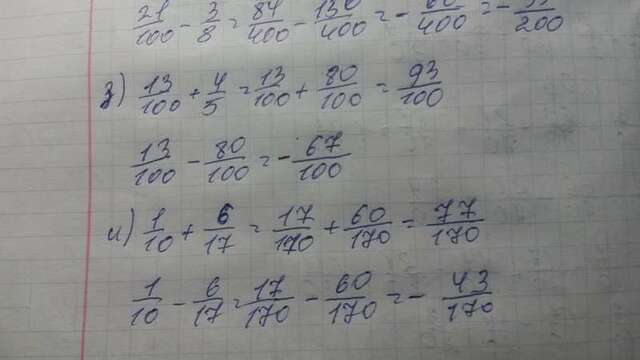 21/100 - 3/8 = 84/400 - 150/400 = - 66/400 = -
з) 13/100 + 4/5 = 13/100 + 80/100 = 93/100
13/100 - 80/100 = - 67/100
и) 1/10 + 6/17 = 17/170 + 60/170 = 77/170
1/10 - 6/17 = 17/170 - 60/170 = - 43/170